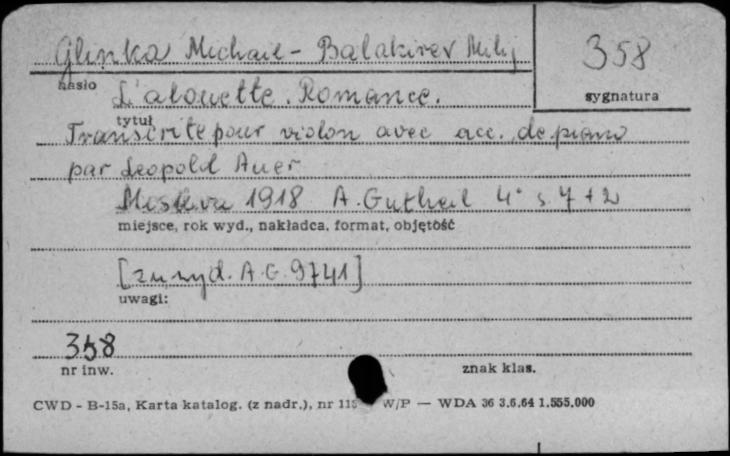 Glinka Michail - Bałakirev Miłij
358
hasło
L'alouette. Romance.
sygnatura
tytuł
Transcrite pour violon avec acc. de piano
par Leopold Auer
Moskva 1918 A. Gutheil 4° s. 7 + 2
miejsce, rok wyd., nakładca, format, objętość
[zn. wyd. A.G. 9741]
uwagi:
358
nr inw.
znak klas.
CWD - B-15a, Karta katalog. (z nadr.), nr 11 W/P — WDA 36 3.6.64 1.555.000